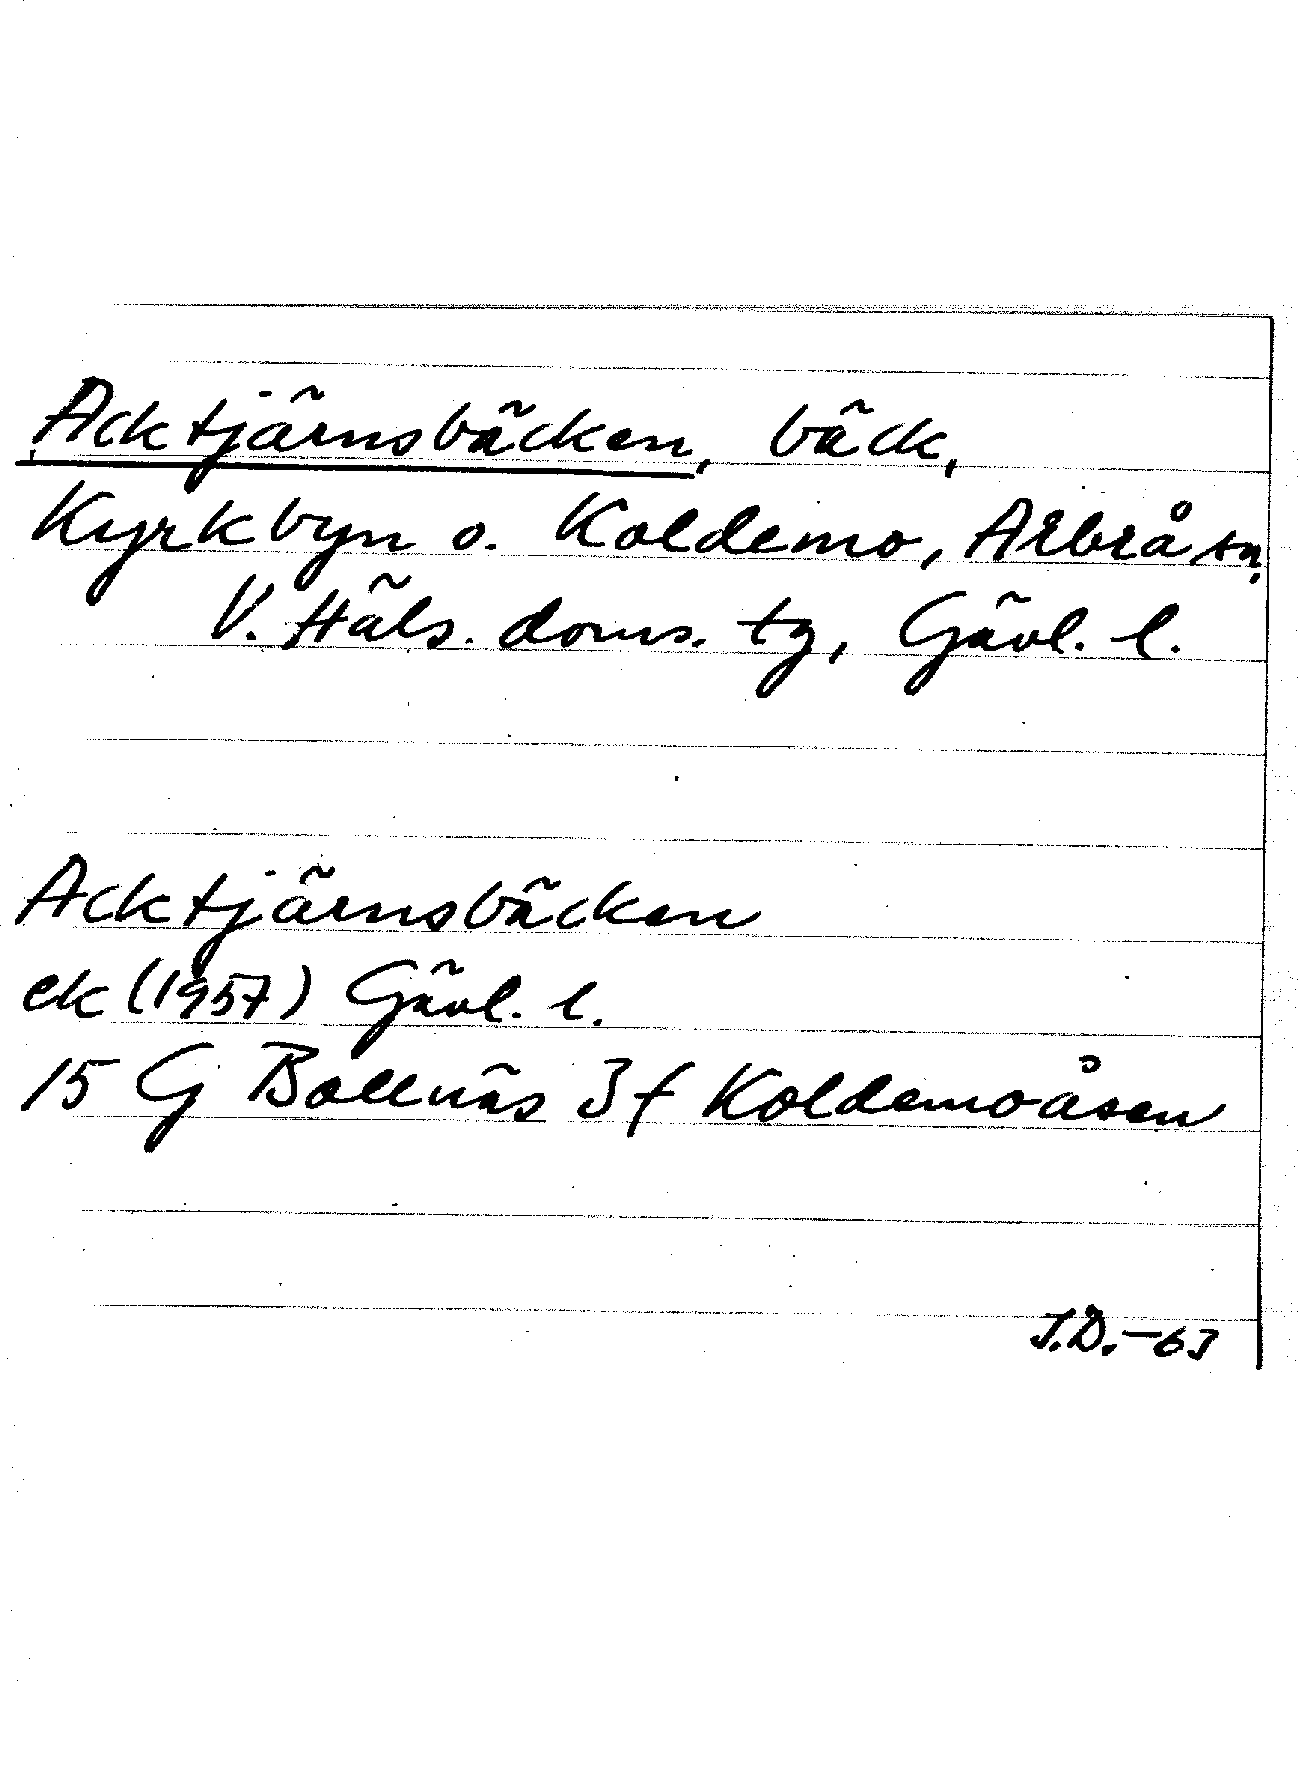 Acktjärnsbäcken, bäck,
Kyrkbyn o. Koldemo, Arbrå sn,
V. Häls. doms. tg, Gävl. l.
Acktjärnsbäcken
ek (1957) Gävl. l.
15 G Bollnäs 3 f Koldemoåsen
J.D.-63